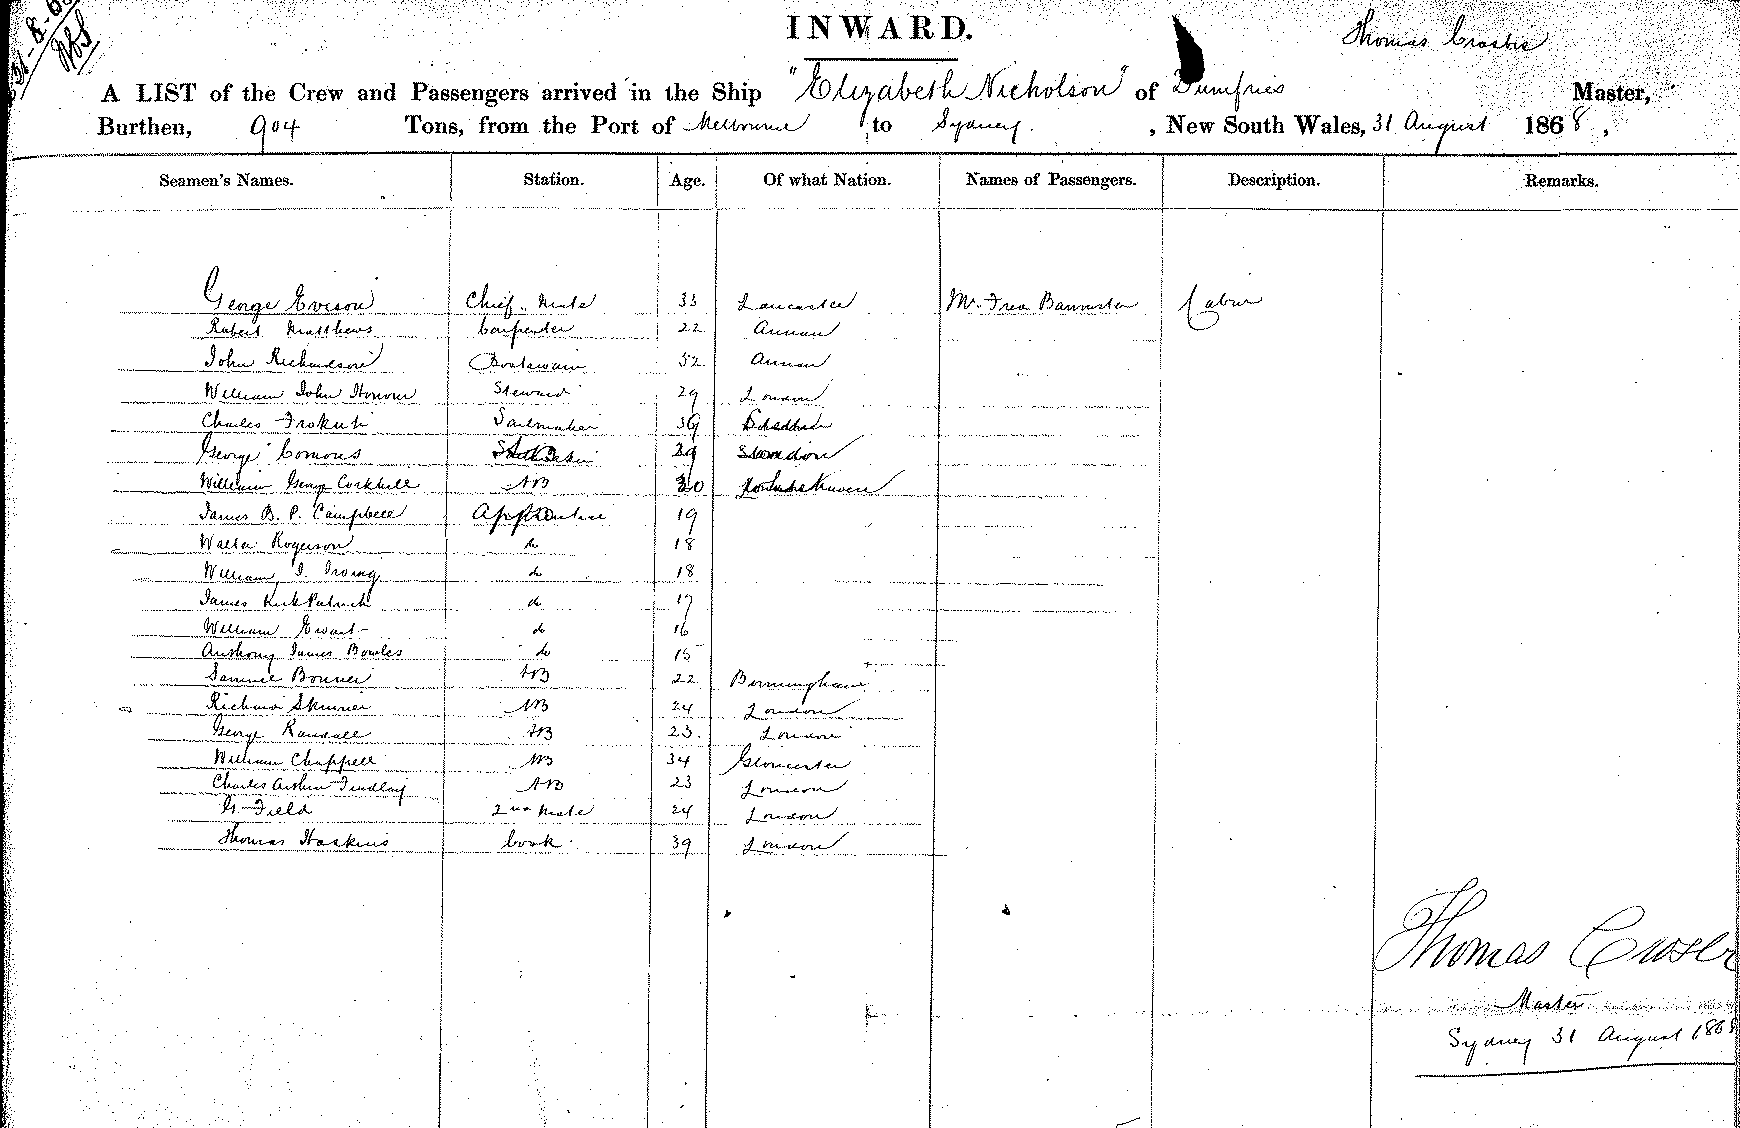 31-8-68
INWARD.
Thomas Crosbie
A LIST of the Crew and Passengers arrived in the Ship "Elizabeth Nicholson" of Dumfries Master,
Burthen, 904 Tons, from the Port of Melbourne to Sydney. , New South Wales, 31 August 1868,
Seamen's Names. Station. Age. Of what Nation. Names of Passengers. Description. Remarks.
George Everson Chief Mate 33 Lancaster Mr. Fred Bannister Cabin
Robert Matthews Carpenter 22 Annan
John Richardson Boatswain 52 Annan
William John Honour Steward 29 London
Charles Sailmaker 39
George Comons 29 London
William George Corkhill AB 30
James B. P. Campbell Apprentice 19
Walter Rogerson do 18
William J. Irving do 18
James KirkPatrick do 17
William Ewart do 16
Anthony James Bowles do 15
Samuel Bonner AB 22 Birmingham
Richard Skinner AB 24 London
George Randall AB 23. London
William Chappell AB 34 Gloucester
Charles Arthur Findlay AB 23 London
G. Field 2nd Mate 24 London
Thomas Hoskins Cook 39 London
Thomas
Master
Sydney 31 August 1868